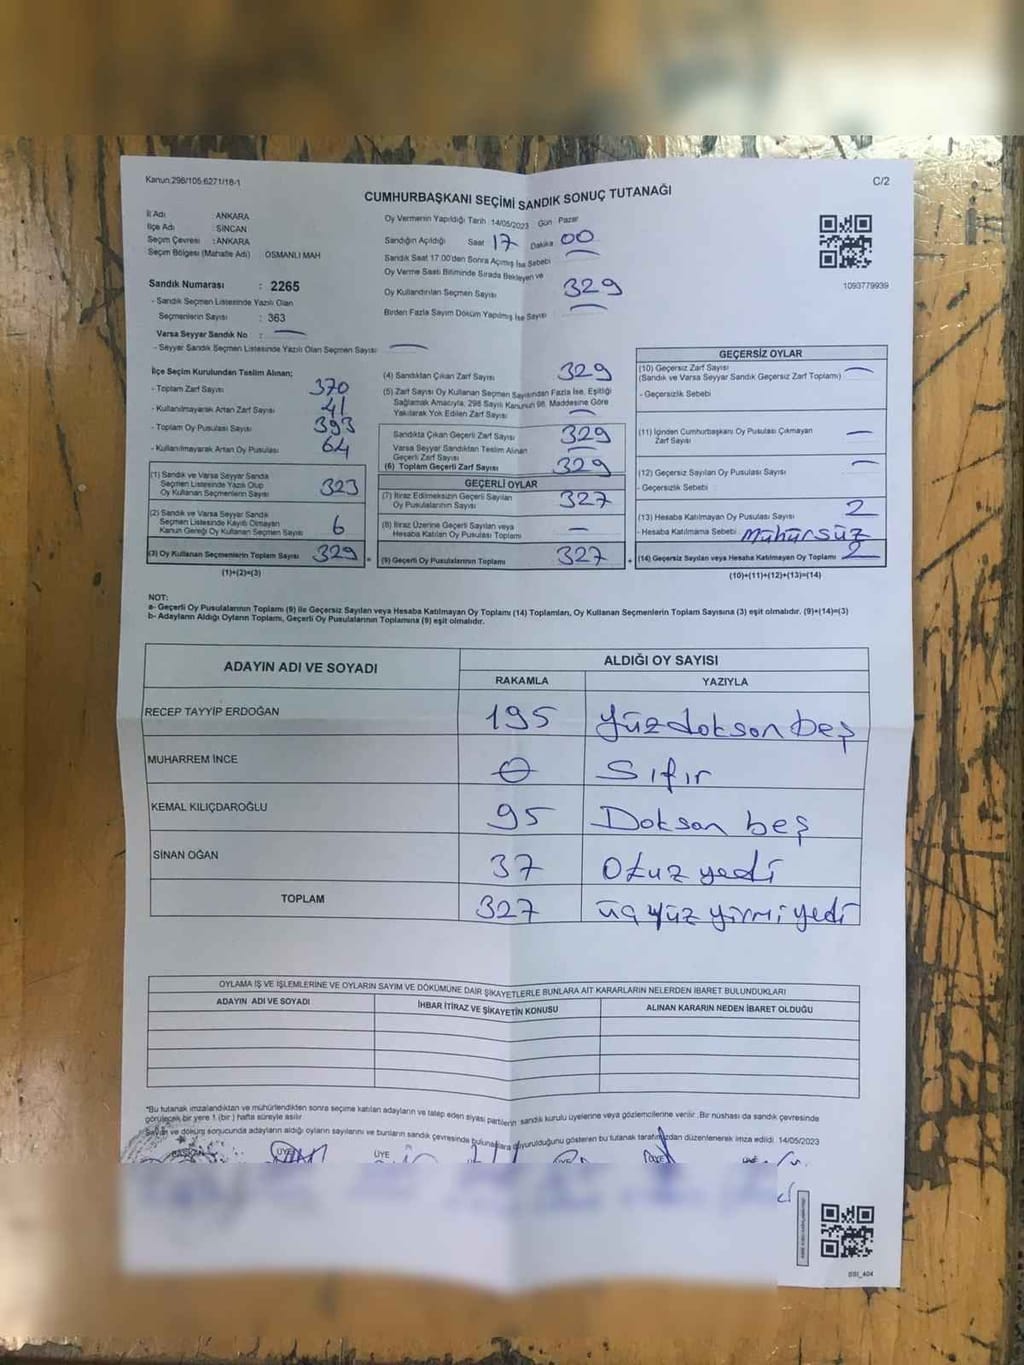 Kanun:298/105:6271/18-1
C/2
CUMHURBAŞKANI SEÇİMİ SANDIK SONUÇ TUTANAĞI
İl Adı : ANKARA
İlçe Adı : SİNCAN
Seçim Çevresi : ANKARA
Seçim Bölgesi (Mahalle Adı) OSMANLI MAH
Sandık Numarası : 2265
- Sandık Seçmen Listesinde Yazılı Olan
Seçmenlerin Sayısı : 363
Varsa Seyyar Sandık No : —
- Seyyar Sandık Seçmen Listesinde Yazılı Olan Seçmen Sayısı —
Oy Vermenin Yapıldığı Tarih 14/05/2023 Gün Pazar
Sandığın Açıldığı Saat 17 Dakika 00
Sandık Saat 17.00'den Sonra Açılmış İse Sebebi —
Oy Verme Saati Bitiminde Sırada Bekleyen ve
Oy Kullandırılan Seçmen Sayısı 329
Birden Fazla Sayım Döküm Yapılmış İse Sayısı —
1093779939
İlçe Seçim Kurulundan Teslim Alınan;
- Toplam Zarf Sayısı 370
- Kullanılmayarak Artan Zarf Sayısı 41
- Toplam Oy Pusulası Sayısı 393
- Kullanılmayarak Artan Oy Pusulası 64
(1) Sandık ve Varsa Seyyar Sandık
Seçmen Listesinde Yazılı Olup
Oy Kullanan Seçmenlerin Sayısı 323
(2) Sandık ve Varsa Seyyar Sandık
Seçmen Listesinde Kayıtlı Olmayan
Kanun Gereği Oy Kullanan Seçmen Sayısı 6
(3) Oy Kullanan Seçmenlerin Toplam Sayısı 329
(1)+(2)=(3)
(4) Sandıktan Çıkan Zarf Sayısı 329
(5) Zarf Sayısı Oy Kullanan Seçmen Sayısından Fazla İse, Eşitliği
Sağlamak Amacıyla, 298 Sayılı Kanunun 98. Maddesine Göre
Yakılarak Yok Edilen Zarf Sayısı —
Sandıkta Çıkan Geçerli Zarf Sayısı 329
Varsa Seyyar Sandıktan Teslim Alınan
Geçerli Zarf Sayısı —
(6) Toplam Geçerli Zarf Sayısı 329
GEÇERLİ OYLAR
(7) İtiraz Edilmeksizin Geçerli Sayılan
Oy Pusulalarının Sayısı 327
(8) İtiraz Üzerine Geçerli Sayılan veya
Hesaba Katılan Oy Pusulası Toplamı —
= (9) Geçerli Oy Pusulalarının Toplamı 327
GEÇERSİZ OYLAR
(10) Geçersiz Zarf Sayısı
(Sandık ve Varsa Seyyar Sandık Geçersiz Zarf Toplamı) —
- Geçersizlik Sebebi
(11) İçinden Cumhurbaşkanı Oy Pusulası Çıkmayan
Zarf Sayısı —
(12) Geçersiz Sayılan Oy Pusulası Sayısı —
- Geçersizlik Sebebi
(13) Hesaba Katılmayan Oy Pusulası Sayısı 2
- Hesaba Katılmama Sebebi Mühürsüz
+ (14) Geçersiz Sayılan veya Hesaba Katılmayan Oy Toplamı 2
(10)+(11)+(12)+(13)=(14)
NOT:
a- Geçerli Oy Pusulalarının Toplamı (9) ile Geçersiz Sayılan veya Hesaba Katılmayan Oy Toplamı (14) Toplamları, Oy Kullanan Seçmenlerin Toplam Sayısına (3) eşit olmalıdır. (9)+(14)=(3)
b- Adayların Aldığı Oyların Toplamı, Geçerli Oy Pusulalarının Toplamına (9) eşit olmalıdır.
ADAYIN ADI VE SOYADI
ALDIĞI OY SAYISI
RAKAMLA YAZIYLA
RECEP TAYYİP ERDOĞAN 195 Yüzdoksan beş
MUHARREM İNCE 0 Sıfır
KEMAL KILIÇDAROĞLU 95 Doksan beş
SİNAN OĞAN 37 Otuz yedi
TOPLAM 327 üçyüz yirmi yedi
OYLAMA İŞ VE İŞLEMLERİNE VE OYLARIN SAYIM VE DÖKÜMÜNE DAİR ŞİKAYETLERLE BUNLARA AİT KARARLARIN NELERDEN İBARET BULUNDUKLARI
ADAYIN ADI VE SOYADI İHBAR İTİRAZ VE ŞİKAYETİN KONUSU ALINAN KARARIN NEDEN İBARET OLDUĞU
*Bu tutanak imzalandıktan ve mühürlendikten sonra seçime katılan adayların ve talep eden siyasi partilerin sandık kurulu üyelerine veya gözlemcilerine verilir. Bir nüshası da sandık çevresinde
görülecek bir yere 1 (bir) hafta süreyle asılır.
Sayım ve döküm sonucunda adayların aldığı oyların sayılarını ve bunların sandık çevresinde bulunanlara duyurulduğunu gösteren bu tutanak tarafımızdan düzenlenerek imza edildi. 14/05/2023
BAŞKAN ÜYE ÜYE ÜYE ÜYE
SSI_404